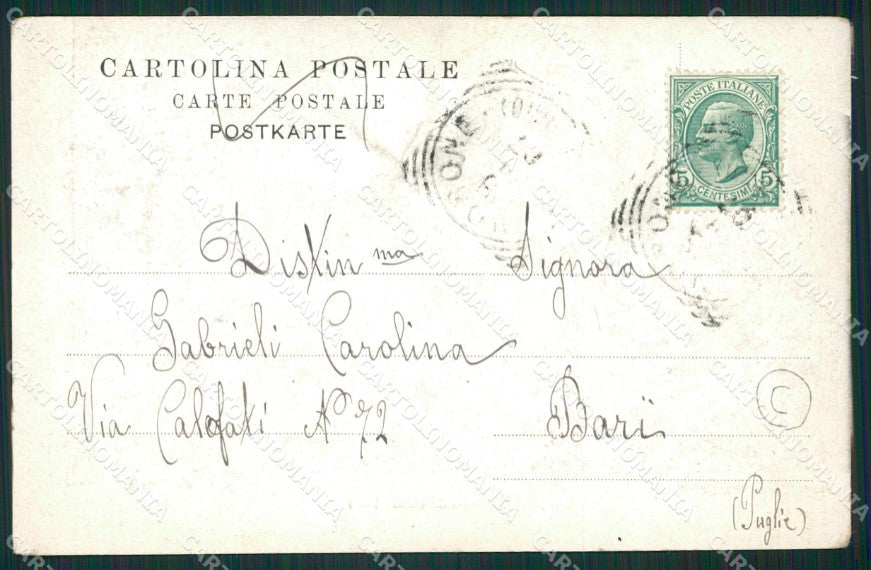 CARTOLINA POSTALE
CARTE POSTALE
POSTKARTE
POSTE ITALIANE
5 CENTESIMI 5
Distin ma Signora
Gabrieli Carolina
Via Calefati No 72 Bari
C
(Puglie)
CARTOLINOMANIA